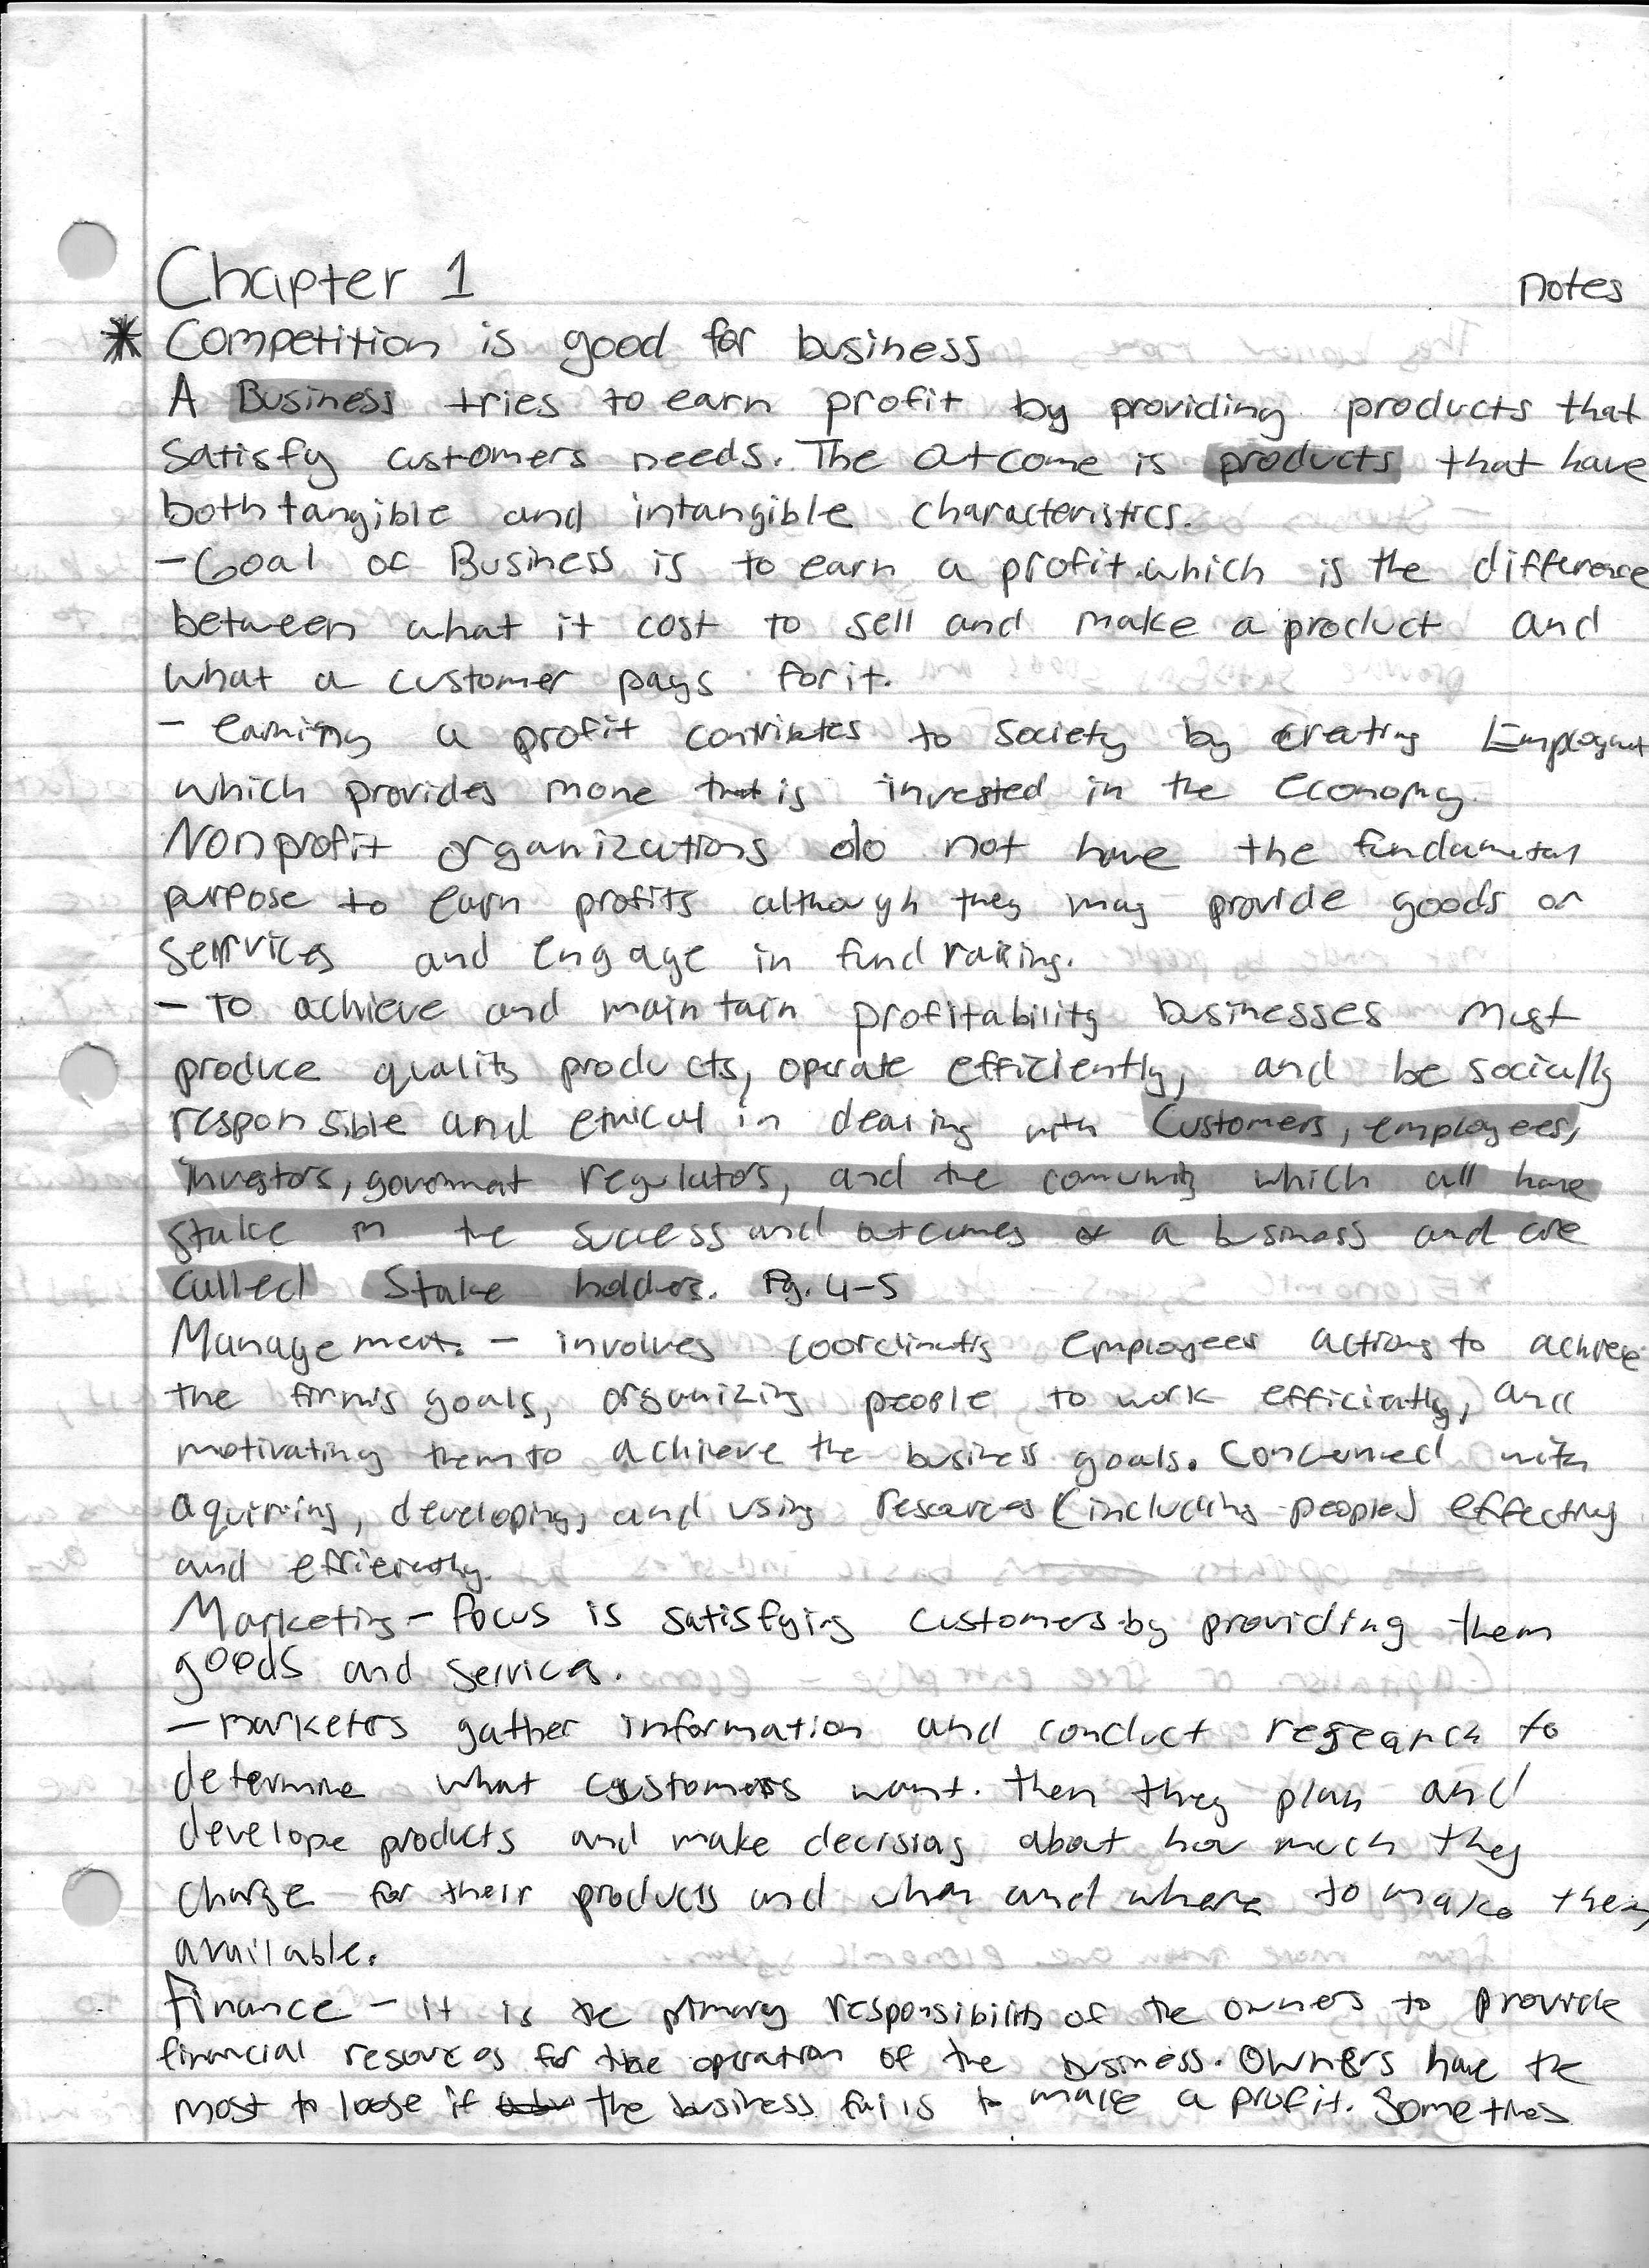 Chapter 1 notes
* Competition is good for business
A Business tries to earn profit by providing products that
Satisfy customers needs. The outcome is products that have
both tangible and intangible characteristics.
- Goal of Business is to earn a profit.which is the difference
between what it cost to sell and make a product and
what a customer pays for it.
- earning a profit contributes to society by creating Employment
which provides mone that is invested in the economy.
Nonprofit organizations do not have the fundamental
purpose to earn profits although they may provide goods or
services and engage in fund raising.
- To achieve and maintain profitability businesses must
produce quality products, operate efficiently, and be socially
responsible and ethical in dealing with Customers, employees,
investors, government regulators, and the comunity which all have
stake in the success and outcomes of a business and are
called Stake holders. Pg. 4-5
Management. - involves coordinating employees actions to achieve
the firm's goals, organizing people to work efficiently, and
motivating them to achieve the business goals. Concerned with
aquiring, developing, and using resources (including people) effectivly
and efficiently.
Marketing - focus is satisfying customers by providing them
goods and services.
- marketers gather information and conduct research to
determine what customers want. then they plan and
develope products and make decisions about how much they
charge for their products and when and where to make them
available.
Finance - it is the primary responsibility of the owners to provide
financial resources for the operation of the business. Owners have the
most to loose if the business fails to make a profit. Sometimes